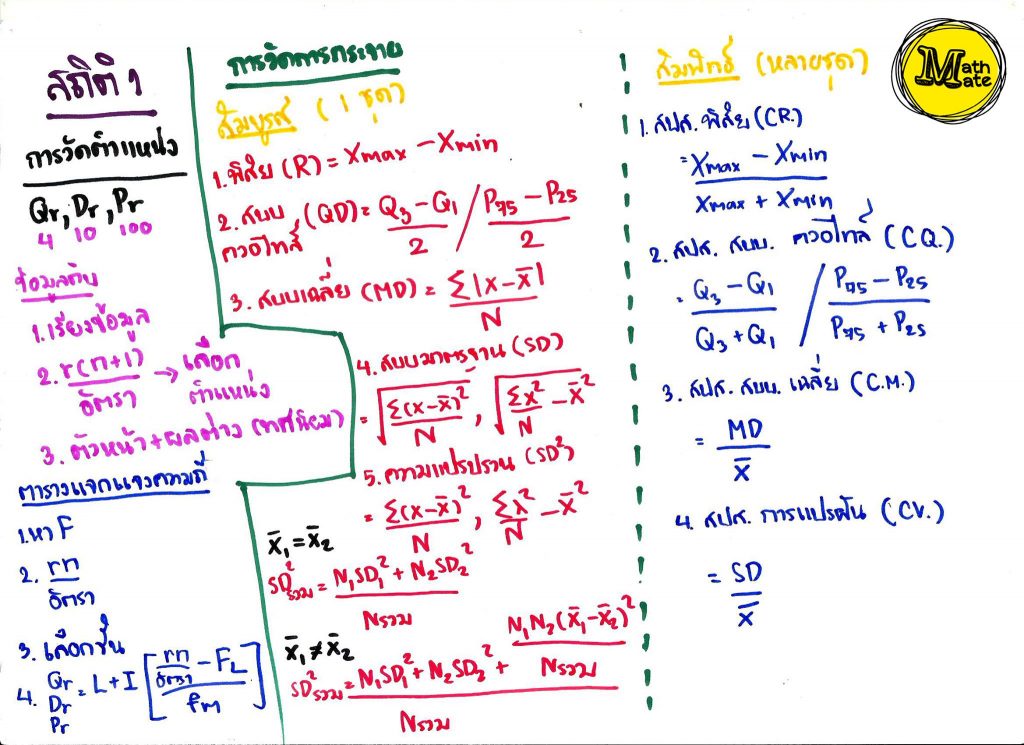 สถิติ 1
การวัดตำแหน่ง
Qr, Dr, Pr
4 10 100
ข้อมูลดิบ
1. เรียงข้อมูล
2. r(n+1)/อัตรา → เลือกตำแหน่ง
3. ตัวหน้า+ผลต่าง (ทศนิยม)
ตารางแจกแจงความถี่
1. หา F
2. rn/อัตรา
3. เลือกชั้น
4. Qr Dr Pr = L + I [(rn/อัตรา − FL)/fm]
การวัดการกระจาย
สัมบูรณ์ (1 ชุด)
1. พิสัย (R) = Xmax − Xmin
2. สบบ ควอไทล์ (QD) = (Q3 − Q1)/2 / (P75 − P25)/2
3. สบบเฉลี่ย (MD) = Σ|x−x̄|/N
4. สบบมาตรฐาน (SD)
= √(Σ(x−x̄)²/N), √(Σx²/N − x̄²)
5. ความแปรปรวน (SD²)
= Σ(x−x̄)²/N, Σx²/N − x̄²
x̄1 = x̄2
SD²รวม = (N1SD1² + N2SD2²)/Nรวม
x̄1 ≠ x̄2
SD²รวม = (N1SD1² + N2SD2² + N1N2(x̄1−x̄2)²/Nรวม)/Nรวม
สัมพัทธ์ (หลายชุด)
1. สปส. พิสัย (CR.)
= (Xmax − Xmin)/(Xmax + Xmin)
2. สปส. สบบ. ควอไทล์ (CQ.)
= (Q3 − Q1)/(Q3 + Q1) / (P75 − P25)/(P75 + P25)
3. สปส. สบบ. เฉลี่ย (C.M.)
= MD/x̄
4. สปส. การแปรผัน (CV.)
= SD/x̄
Math
Mate